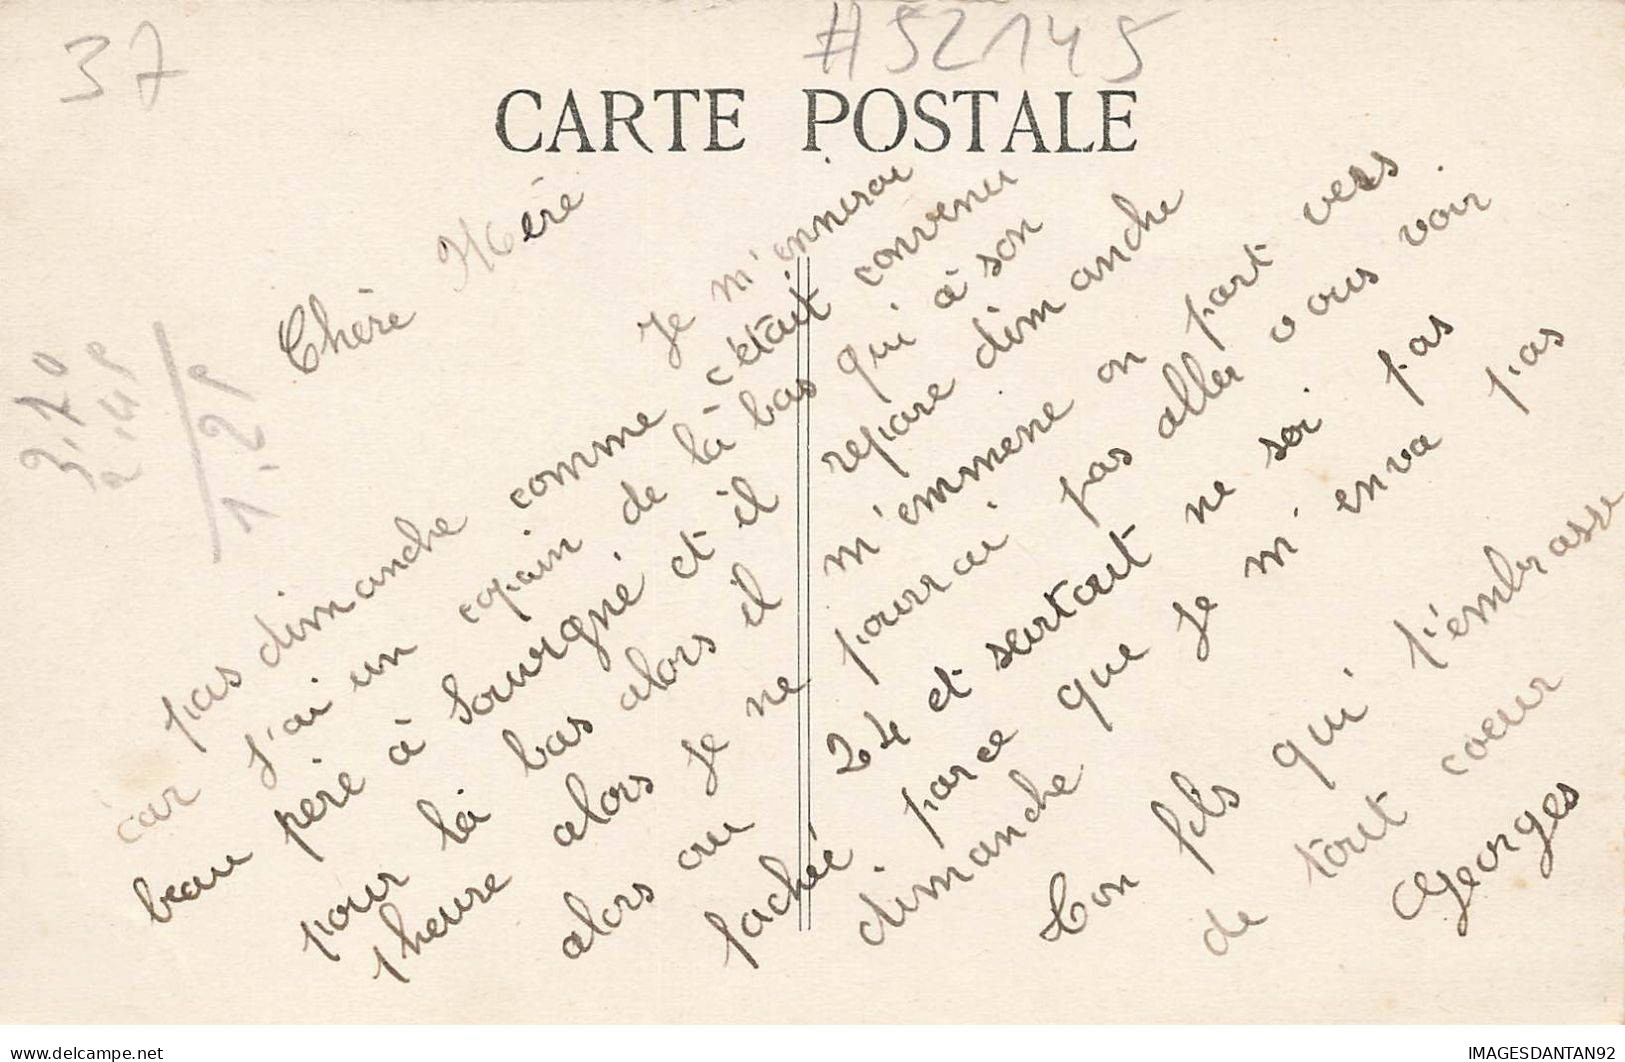 37
#52145
CARTE POSTALE
Chère Mère
Je m'ennerai
pas dimanche comme c'était convenu
car j'ai un copain de là bas qui à son
beau père à Sourgné et il repare dimanche
pour là bas alors il m'emmene on part vers
1 heure alors je ne pourrai pas aller vous voir
alors au 24 et surtout ne soi pas
fachée parce que je m'enva pas
dimanche
Ton fils qui t'embrasse
de tout coeur
Georges
3.70
2.49
1.21
www.delcampe.net
IMAGESDANTAN92